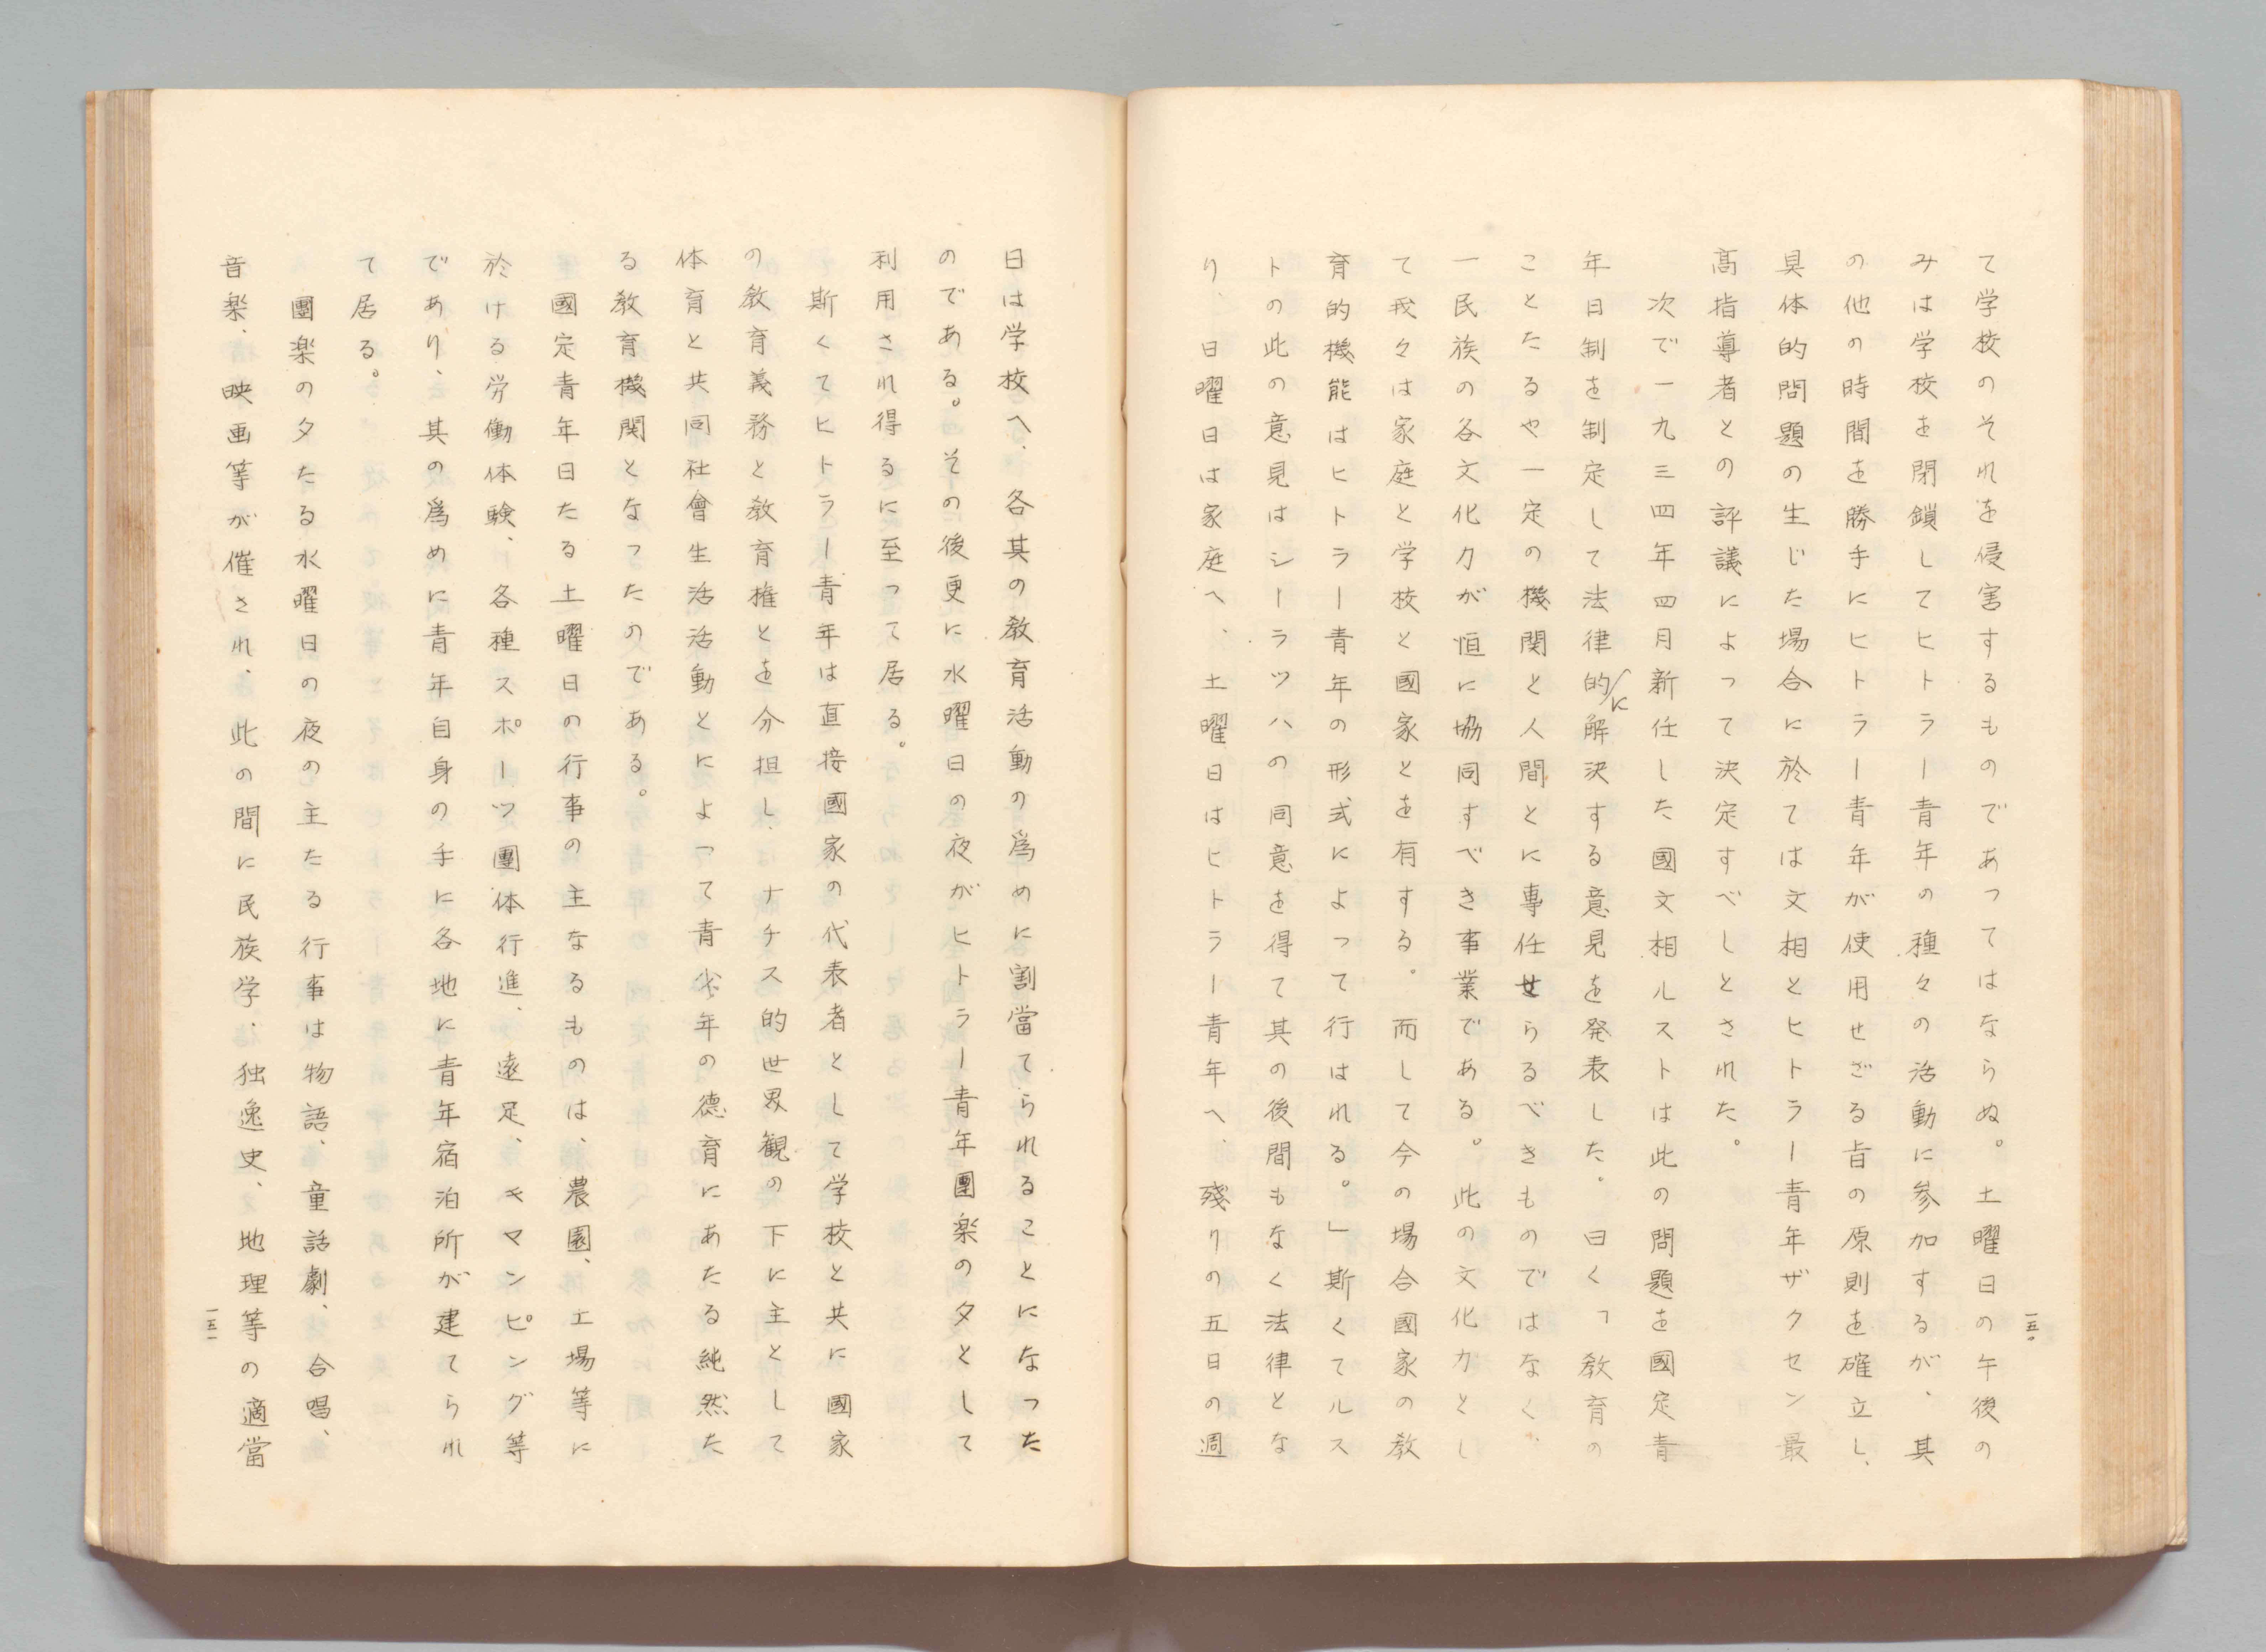 て学校のそれを侵害するものであってはならぬ。土曜日の午後の
みは学校を閉鎖してヒトラー青年の種々の活動に参加するが、其
の他の時間を勝手にヒトラー青年が使用せざる旨の原則を確立し、
具体的問題の生じた場合に於ては文相とヒトラー青年ザクセン最
高指導者との評議によって決定すべしとされた。
次で一九三四年四月新任した國文相ルストは此の問題を國定青
年日制を制定して法律的に解決する意見を発表した。曰く「教育の
ことたるや一定の機関と人間とに專任せらるべきものではなく、
一民族の各文化力が恒に協同すべき事業である。此の文化力とし
て我々は家庭と学校と國家とを有する。而して今の場合國家の教
育的機能はヒトラー青年の形式によって行はれる。」斯くてルス
トの此の意見はシーラッハの同意を得て其の後間もなく法律とな
り、日曜日は家庭へ、土曜日はヒトラー青年へ、殘りの五日の週
一五〇
日は学校へ、各其の教育活動の為めに割當てられることになった
のである。その後更に水曜日の夜がヒトラー青年團楽の夕として
利用され得るに至って居る。
斯くてヒトラー青年は直接國家の代表者として学校と共に國家
の教育義務と教育権とを分担し、ナチス的世界観の下に主として
体育と共同社會生活活動とによって青少年の德育にあたる純然た
る教育機関となったのである。
國定青年日たる土曜日の行事の主なるものは、農園、工場等に
於ける労働体験、各種スポーツ團体行進、遠足、キマンピング等
であり、其の為めに青年自身の手に各地に青年宿泊所が建てられ
て居る。
團楽の夕たる水曜日の夜の主たる行事は物語、童話劇、合唱、
音楽、映画等が催され、此の間に民族学、独逸史、地理等の適當
一五一